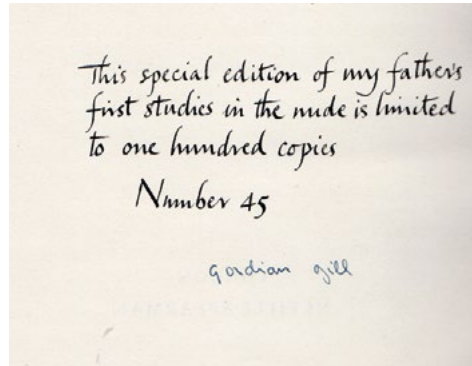 This special edition of my father's
first studies in the nude is limited
to one hundred copies
Number 45
gordian gill